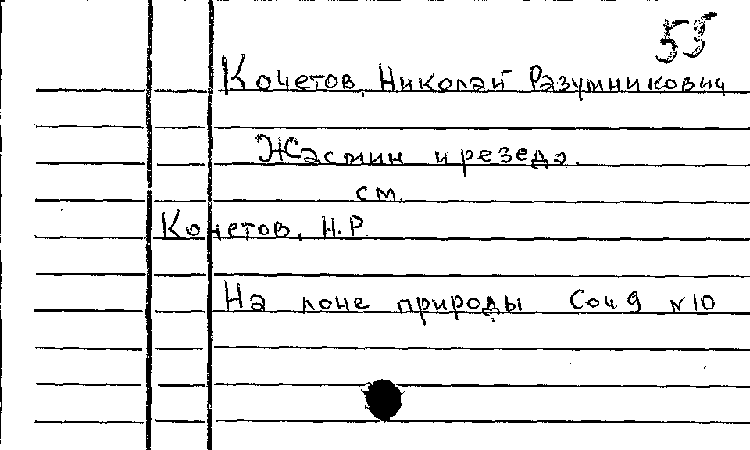 55
Кочетов, Николай Разумникович
Жасмин и резеда.
см.
Кочетов, Н.Р.
На лоне природы Соч 9 N 10